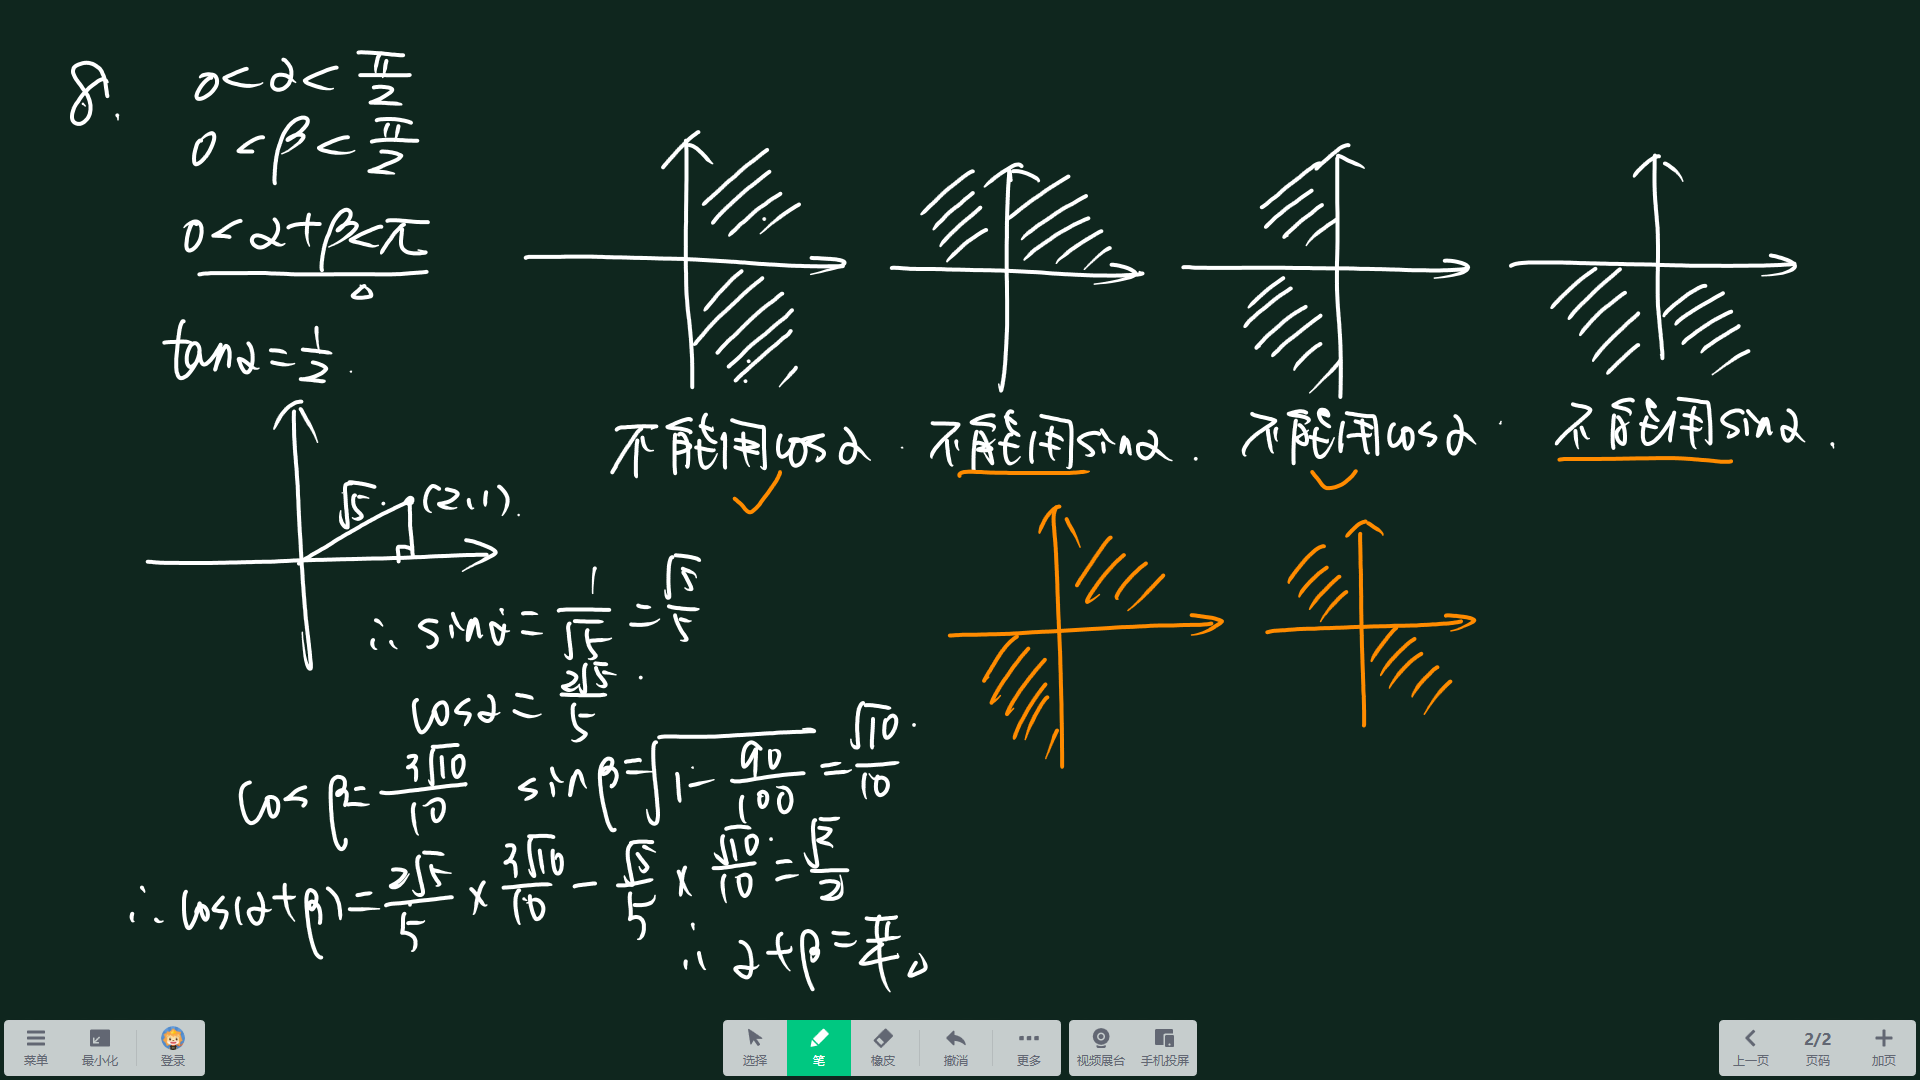 8.
0<α<π/2
0<β<π/2
0<α+β<π
tanα=1/2.
√5 (2,1).
∴ sinα=1/√5=√5/5
cosα=2√5/5.
cosβ=3√10/10 sinβ=√(1-90/100)=√10/10.
∴ cos(α+β)=2√5/5×3√10/10-√5/5×√10/10=√2/2
∴ α+β=π/4。
不能用cosα.
不能用sinα.
不能用cosα.
不能用sinα.
菜单
最小化
登录
选择
笔
橡皮
撤消
更多
视频展台
手机投屏
上一页
2/2
页码
加页